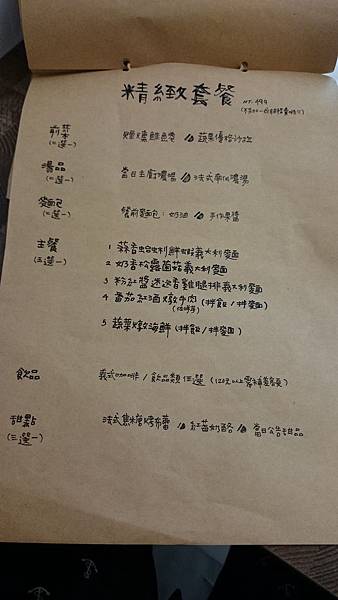 精緻套餐
NT. 499
前菜 (二選一) 煙燻鮭魚捲 / 蔬果優格沙拉
湯品 (二選一) 當日主廚濃湯 / 法式
麵包 (二選一) 餐前麵包:奶油 / 手作果醬
主餐 (五選一)
1 蒜香蛤蜊鮮蝦義大利麵
2 奶香松露菌菇義大利麵
3 粉紅醬迷迭香雞腿排義大利麵
4 番茄紅酒燉牛肉 (拌飯 / 拌麵)
5 蔬菜燉海鮮 (拌飯 / 拌麵)
飲品 義式咖啡 / 飲品類任選 (120元以上需補差價)
甜點 (三選一) 法式焦糖烤布蕾 / 紅莓奶酪 / 當日公告甜品